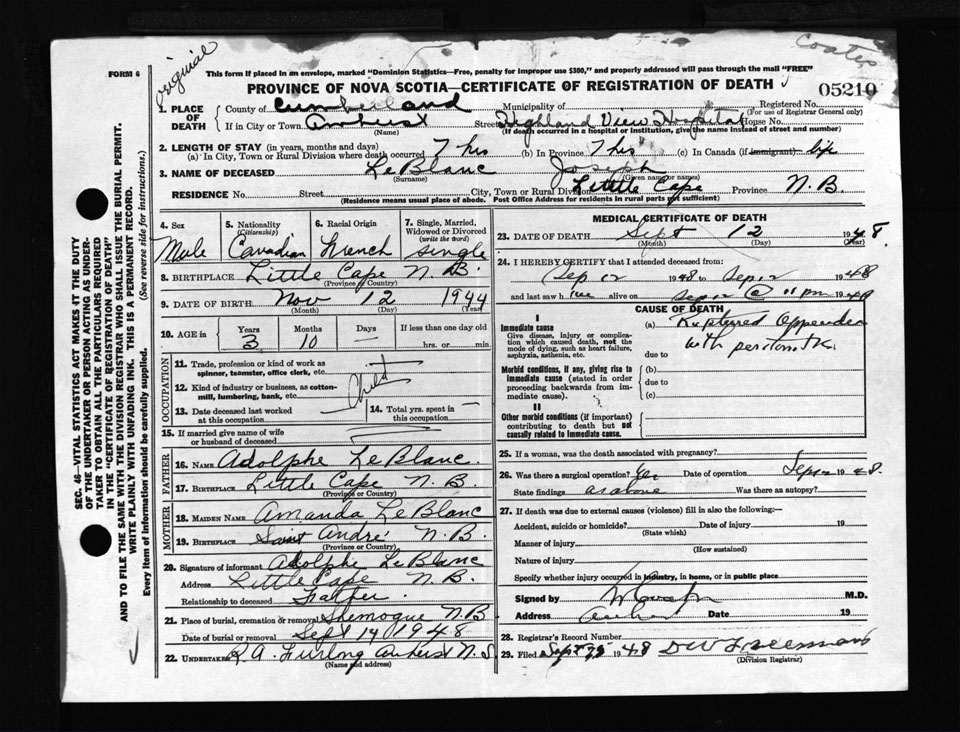 Coates
FORM 6
original
This form if placed in an envelope, marked "Dominion Statistics—Free, penalty for improper use $300," and properly addressed will pass through the mail "FREE"
PROVINCE OF NOVA SCOTIA—CERTIFICATE OF REGISTRATION OF DEATH
05210
1. PLACE OF DEATH
County of Cumberland Municipality of Registered No.
(For use of Registrar General only)
If in City or Town Amherst Street Highland View Hospital House No.
(Name) (If death occurred in a hospital or institution, give the name instead of street and number)
2. LENGTH OF STAY (in years, months and days)
(a) In City, Town or Rural Division where death occurred 7 hrs (b) In Province 7 hrs (c) In Canada (if immigrant) life
3. NAME OF DECEASED LeBlanc Joseph
(Surname) (Given name or names)
RESIDENCE No. Street City, Town or Rural Division Little Cape Province N.B.
(Residence means usual place of abode. Post Office Address for residents in rural parts not sufficient)
4. Sex 5. Nationality (Citizenship) 6. Racial Origin 7. Single, Married, Widowed or Divorced (write the word)
Male Canadian French single
8. BIRTHPLACE Little Cape N.B.
(Province or Country)
9. DATE OF BIRTH Nov 12 1944
(Month) (Day) (Year)
10. AGE in Years Months Days If less than one day old
3 10 — hrs. or min.
OCCUPATION
11. Trade, profession or kind of work as spinner, teamster, office clerk, etc.
12. Kind of industry or business, as cotton-mill, lumbering, bank, etc.
Child
13. Date deceased last worked at this occupation
14. Total yrs. spent in this occupation —
15. If married give name of wife or husband of deceased
FATHER
16. NAME Adolphe LeBlanc.
17. BIRTHPLACE Little Cape N.B.
(Province or Country)
MOTHER
18. MAIDEN NAME Amanda LeBlanc
19. BIRTHPLACE Saint André N.B.
(Province or Country)
20. Signature of informant Adolphe LeBlanc
Address Little Cape N.B.
Relationship to deceased Father
21. Place of burial, cremation or removal Shemogue N.B
Date of burial or removal Sept 14 1948
22. UNDERTAKER R.A. Furlong Amherst N.S.
(Name and address)
MEDICAL CERTIFICATE OF DEATH
23. DATE OF DEATH Sept 12 1948.
(Month) (Day) (Year)
24. I HEREBY CERTIFY that I attended deceased from:
Sep 12 1948 to Sep 12 1948
and last saw h im alive on Sep 12 @ 11 pm 1948
CAUSE OF DEATH
I
Immediate cause
Give disease, injury or complication which caused death, not the mode of dying, such as heart failure, asphyxia, asthenia, etc.
(a) Ruptured Appendix
with peritonitis.
due to
Morbid conditions, if any, giving rise to immediate cause (stated in order proceeding backwards from immediate cause).
(b)
due to
(c)
II
Other morbid conditions (if important) contributing to death but not causally related to immediate cause.
25. If a woman, was the death associated with pregnancy?
26. Was there a surgical operation? Yes Date of operation Sep 12 1948.
State findings as above Was there an autopsy?
27. If death was due to external causes (violence) fill in also the following:—
Accident, suicide or homicide? Date of injury 19
(State which)
Manner of injury
(How sustained)
Nature of injury
Specify whether injury occurred in industry, in home, or in public place
Signed by M.D.
Address Amher Date 19
28. Registrar's Record Number
29. Filed Sept 1948
(Division Registrar)
SEC. 46—VITAL STATISTICS ACT MAKES IT THE DUTY
OF THE UNDERTAKER OR PERSON ACTING AS UNDER-
TAKER TO OBTAIN ALL THE PARTICULARS REQUIRED
IN THE "CERTIFICATE OF REGISTRATION OF DEATH"
AND TO FILE THE SAME WITH THE DIVISION REGISTRAR WHO SHALL ISSUE THE BURIAL PERMIT.
WRITE PLAINLY WITH UNFADING INK. THIS IS A PERMANENT RECORD.
Every item of Information should be carefully supplied. (See reverse side for instructions.)